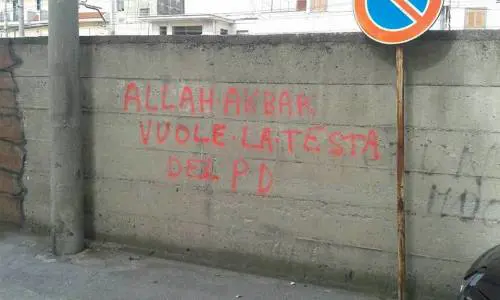 ALLAH·AKBAR
VUOLE·LA·TESTA
DEL PD